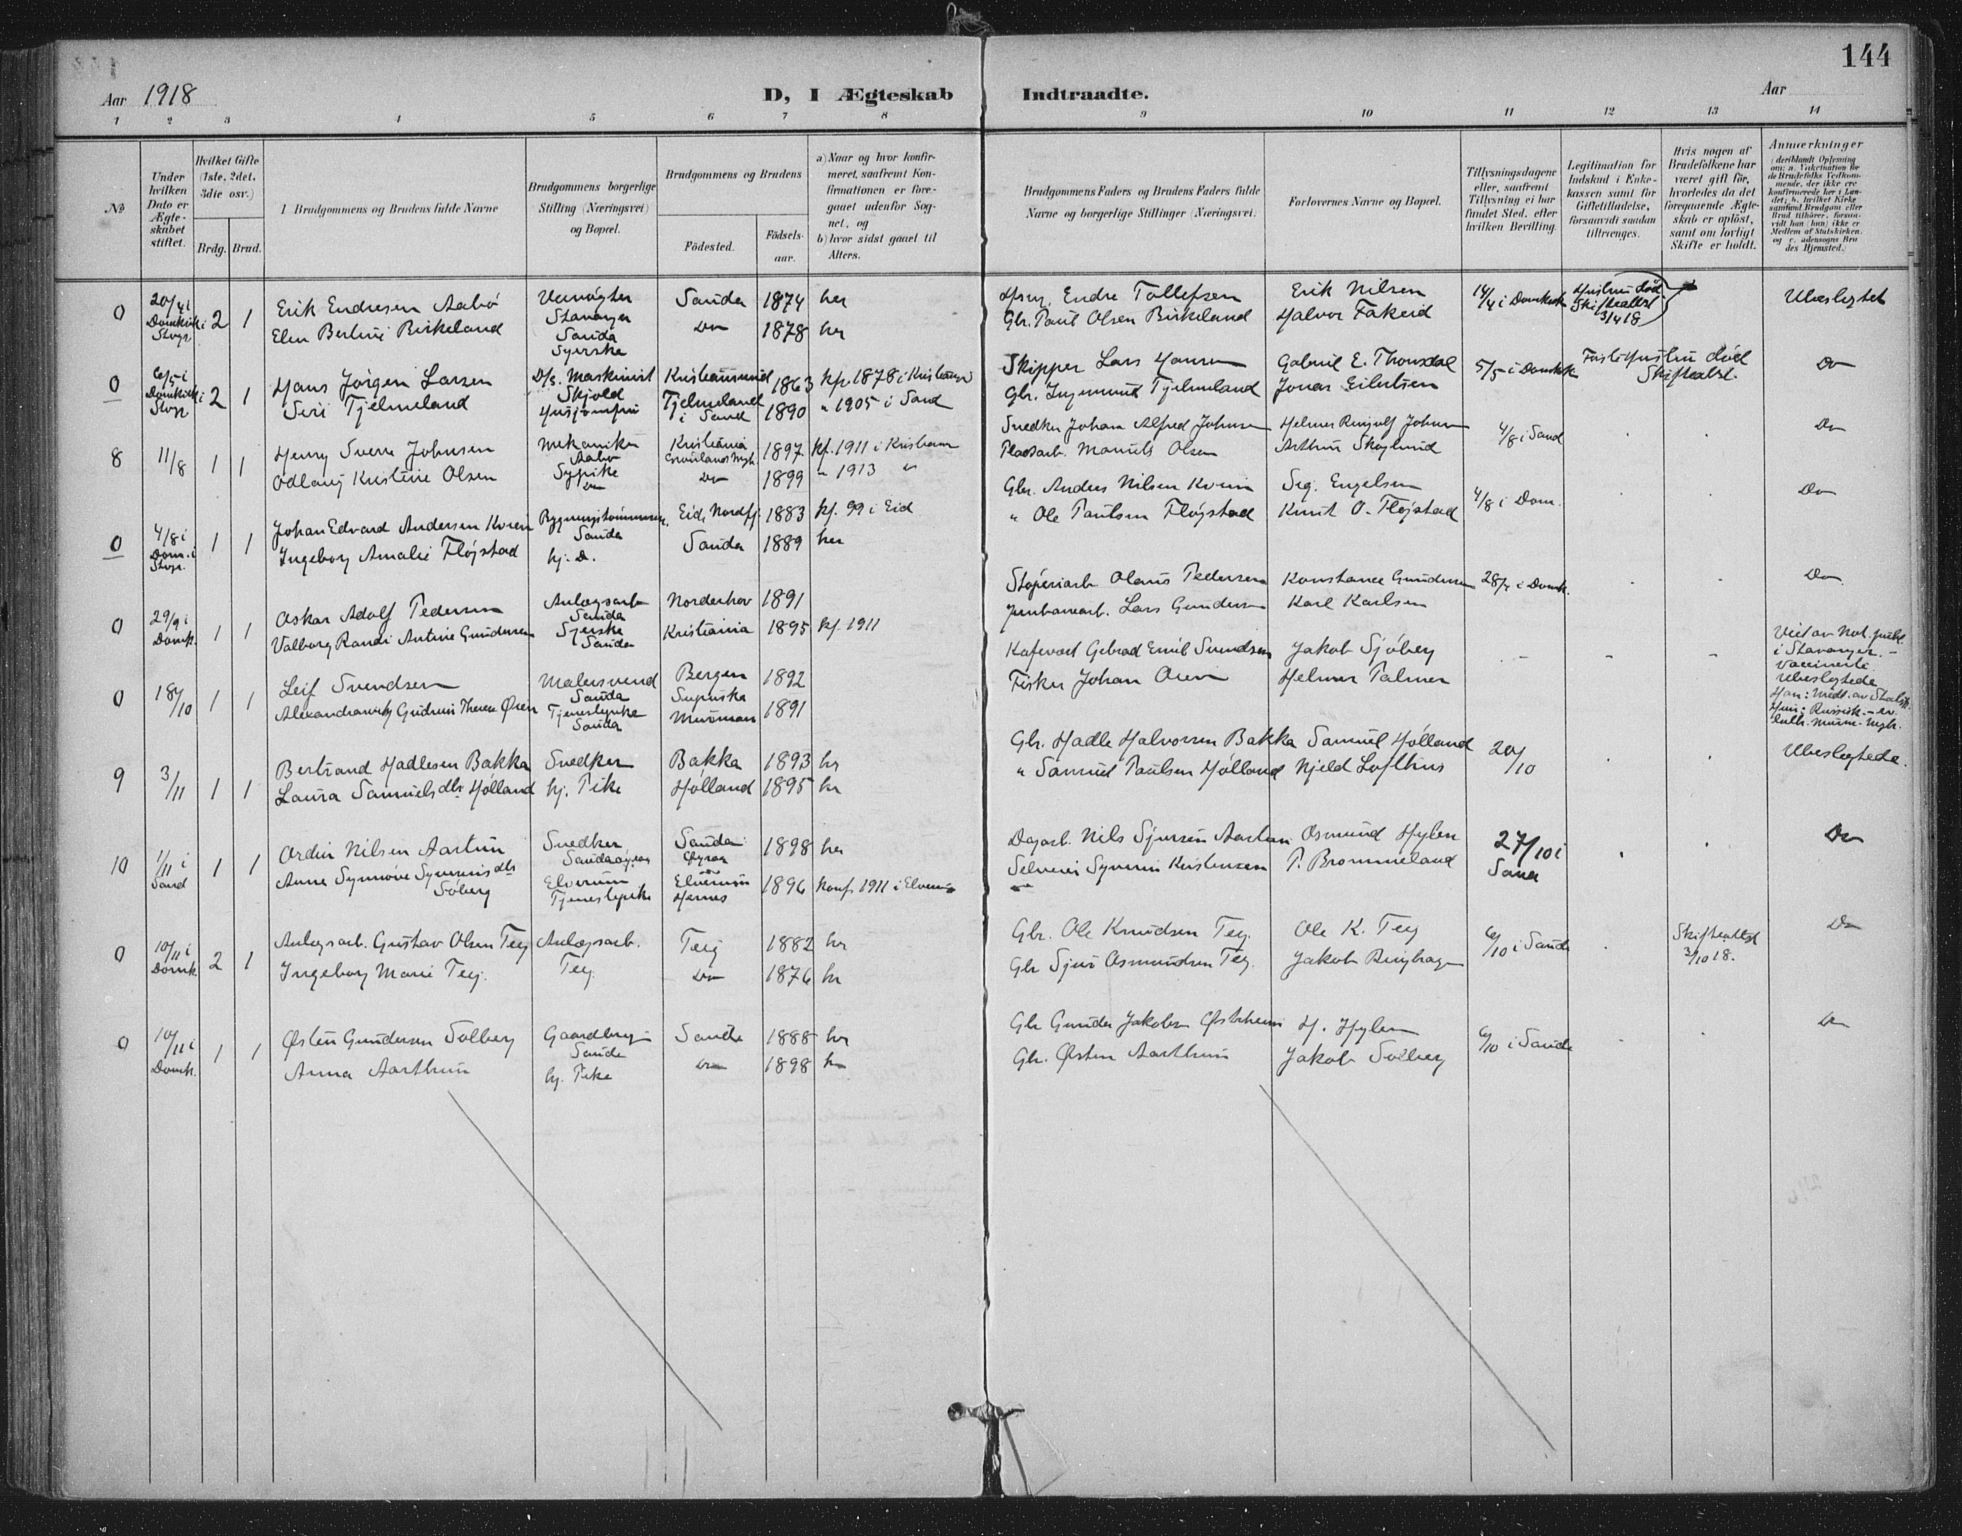 144
Aar 1918
D, I Ægteskab Indtraadte.
Aar
1 2 3 4 5 6 7 8 9 10 11 12 13 14
No
Under hvilken Dato er Ægteskabet stiftet.
Hvilket Gifte (1ste, 2det, 3die osv.)
Brdg. Brud.
Brudgommens og Brudens fulde Navne
Brudgommens borgerlige Stilling (Næringsvei) og Bopæl.
Brudgommens og Brudens
Fødested.
Fødselsaar.
a) Naar og hvor konfirmeret, saafremt Konfirmationen er foregaaet udenfor Sognet, og
b) hvor sidst gaaet til Alters.
Brudgommens Faders og Brudens Faders fulde Navne og borgerlige Stillinger (Næringsvei).
Forlovernes Navne og Bopæl.
Tillysningsdagene eller, saafremt Tillysning ei har fundet Sted, efter hvilken Bevilling.
Legitimation for Indskud i Enkekassen samt for Giftetilladelse, forsaavidt saadan tiltrænges.
Hvis nogen af Brudefolkene har været gift før, hvorledes da det foregaaende Ægteskab er opløst, samt om lovligt Skifte er holdt.
Anmærkninger
0 20/4 i Domkirk i Stvgr 2 1
Erik Endresen Aabø Stavanger Sauda 1874 her
Elen Bertine Birkeland Sauda Syerske Do 1878 her
Endre Tollefsen Erik Nilsen 14/4 i Domkirk
Gbr. Paul Olsen Birkeland Halvor Fakeid
Hustru død Skifteattst 3/4 18
Ubeslegtet
0 6/5 i Domkirk i Stvgr 2 1
Hans Jörgen Larsen D/s. Maskinist Skjold Kristiansund 1863 kf. 1878 i Kristiansd
Siri Tjelmeland Tjelmeland i Sand 1890 " 1905 i Sand
Skipper Lars Hansen Gabriel E. Thonsdal 5/5 i Domkirk
Gbr. Ingemund Tjelmeland Jonas Eilertsen
Hustru død Skifteattst.
Do
8 11/8 1 1
Henry Sverre Johnsen mekaniker Aabø Kristiania 1897 kf. 1911 i Kristiania
Odlaug Kristine Olsen Sypike Do Do 1899 " 1913 "
Snedker Johan Alfred Johnsen 4/8 i Sand
Pladsarb. Olsen Arthur Skoglund
Do
0 4/8 i Dom. i Stvgr. 1 1
Johan Edvard Andersen Kvien Sauda Eid, Nordfj. 1883 kf. 99 i Eid
Ingeborg Amalie Fløjstad hj. D. Sauda 1889 her
Gbr. Anders Nilsen Kvien Sig. Engelsen 4/8 i Dom.
" Ole Paulsen Fløjstad Knut O. Fløjstad
Do
0 29/9 i Domk. 1 1
Oskar Adolf Pedersen Anlægsarb Sauda Norderhov 1891
Valborg Randi Antine Gundersen Syerske Sauda Kristiania 1895 kf. 1911
Olaus Pedersen Konstance Gundersen i Domk.
Jernbanearb. Lars Gundersen Karl Karlsen
Do
0 18/10 1 1
Leif Svendsen Malersvend Sauda Bergen 1892
Gudrun Therese Øien Tjenestepike Sauda Murman 1891
Kafevært Gebrad Emil Svendsen Jakob Sjøberg
Fisker Johan Øien Helmer Palmer
Viet av Not. publ. i Stavanger. -
Vaccinerte
Ubeslegtede
9 3/11 1 1
Bertrand Hadlesen Bakka Snedker Bakka 1893 hr
Laura Samuelsdtr Hølland hj. Pike Hølland 1895 hr
Gbr. Hadle Halvorsen Bakka Samuel Hølland 20/10
" Samuel Paulsen Hølland Njeld Lofthus
Ubeslegtede.
10 1/11 i Sand 1 1
Nilsen Aartun Snedker Sauda 1898 her
Anne Synnøve dtr Søberg Elverum Tjenestepike Elverum Hernes 1896 Konf. 1911 i Elverum
Dagarb. Nils Sjursen Aartun Osmund Hylen 27/10 i Sand
Kristensen P. Brommeland
Do
0 10/11 i Domk 2 1
Anlægsarb. Gustav Olsen Teig Anlægsarb. Teig Teig 1882 hr
Ingeborg Marie Teig. Do 1876 hr
Gbr. Ole Knudsen Teig. Ole K. Teig 6/10 i Sauda
Gbr Sjur Osmundsen Teig.
Skifteattst 3/10 18.
Do
0 10/11 i Domk. 1 1
Østen Gundersen Solberg Sauda Sauda 1888 hr
Anna Aarthun hj. Pike Do 1898 hr
Gbr Gunder Jakobsen Østrheim H. Hylen 6/10 i Sauda
Gbr. Østen Aarthun Jakob Solberg
Do